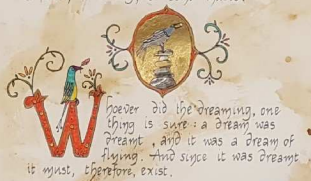 Whoever did the dreaming, one
thing is sure: a dream was
dreamt, and it was a dream of
flying. And since it was dreamt
it must, therefore, exist.